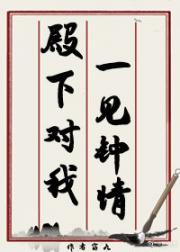 殿下对我
一见钟情
作者